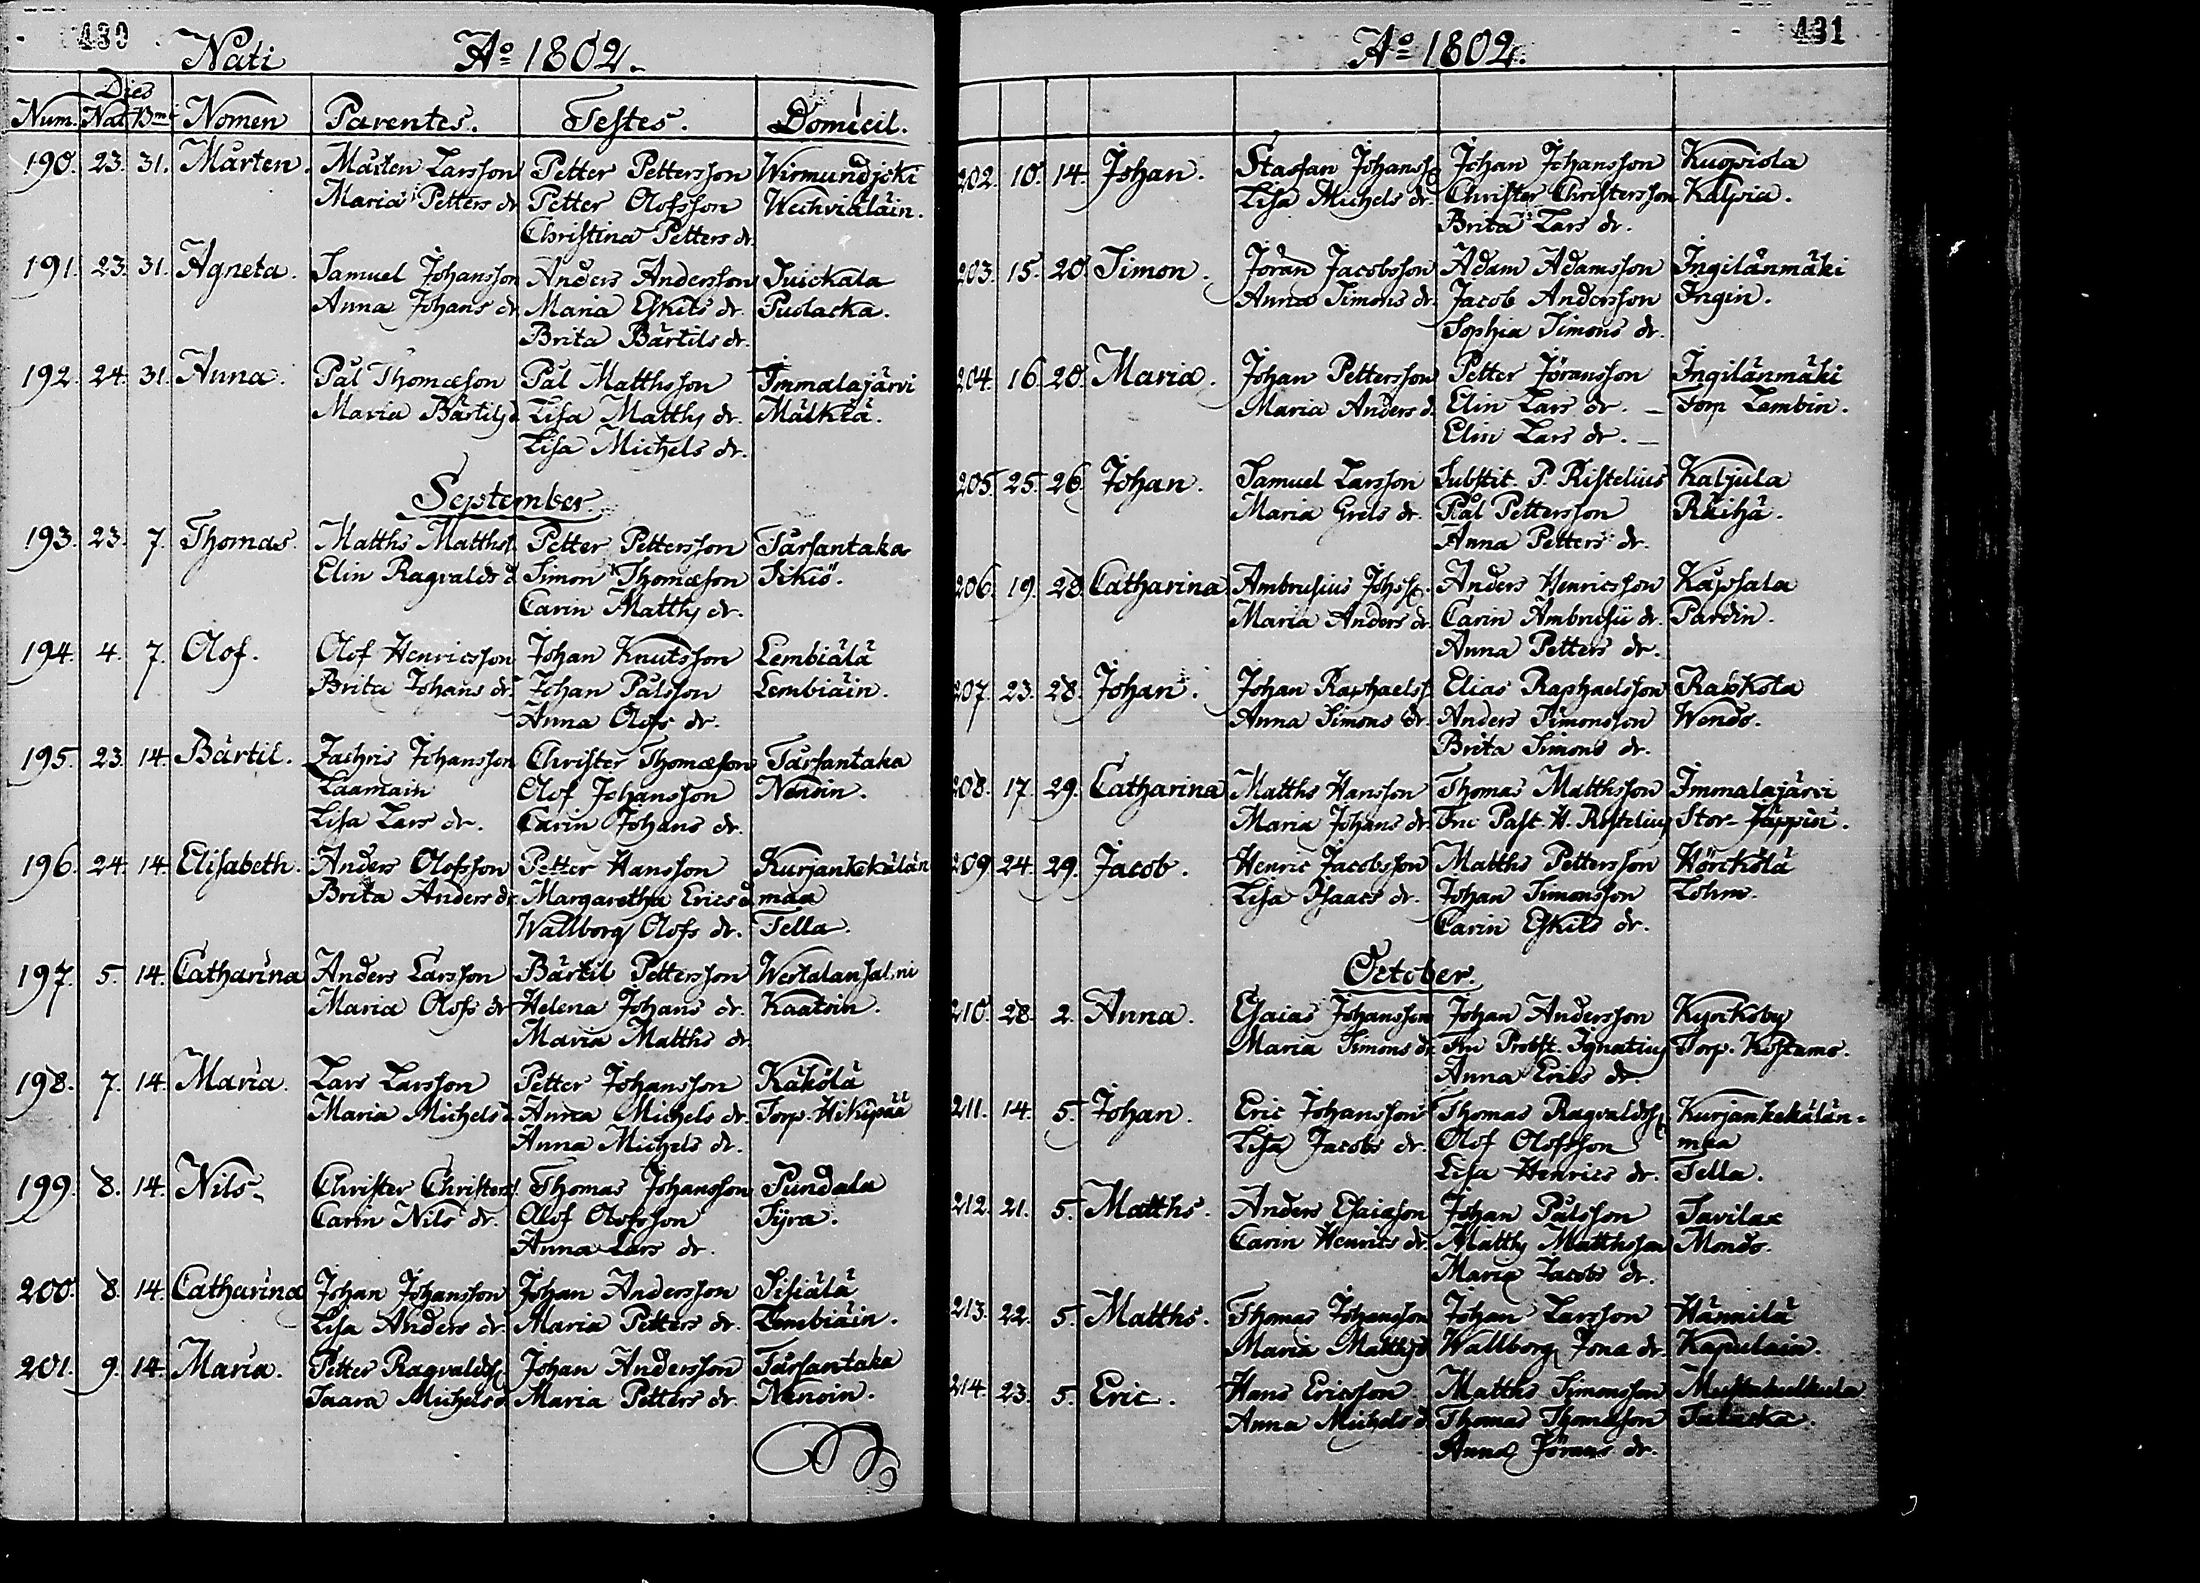 430
Nati Ao 1802.
Dies
Num. Nat. Bm. Nomen Parentes. Testes. Domicil.
190. 23. 31. Mårten. Mårten Larsson Petter Pettersson Wirmundjoki
Maria Petters dr Petter Olofsson Wechviäläin.
Christina Petters dr.
191. 23. 31. Agneta. Samuel Johansson Anders Andersson Suickala
Anna Johans dr Maria Eskils dr. Pulacka.
Brita Bärtils dr.
192. 24. 31. Anna. Pål Thomæson Pål Matthsson Immalajärvi
Maria Bärtils d Lisa Matths dr. Mälkiä.
Lisa Michels dr.
September.
193. 23. 7. Thomas. Matths Matthss. Petter Pettersson Tarfantaka
Elin Ragvalds d Simon Thomæson Sikiö.
Carin Matths dr.
194. 4. 7. Olof. Olof Henricsson Johan Knutsson Lembiälä
Brita Johans dr. Johan Pålsson Lembiäin.
Anna Olofs dr.
195. 23. 14. Bärtil. Zachris Johansson Christer Thomæson Tarfantaka
Laamain Olof Johansson Nenoin.
Lisa Lars dr. Carin Johans dr.
196. 24. 14. Elisabeth. Anders Olofsson Petter Hansson Kurjankekälän
Brita Anders dr. Margaretha Erics d. maa
Wallborg Olofs dr. Tella.
197. 5. 14. Catharina Anders Larsson Bärtil Pettersson Wertalansalmi
Maria Olofs dr Helena Johans dr. Kaatoin.
Maria Matths dr.
198. 7. 14. Maria. Lars Larsson Petter Johansson Käkölä
Maria Michels d. Anna Michels dr. Torp. Hikipää
Anna Michels dr.
199. 8. 14. Nils. Christer Christerss. Thomas Johansson Pundala
Carin Nils dr. Olof Olofsson Tyra.
Anna Lars dr.
200. 8. 14. Catharina Johan Johansson Johan Andersson Sisiälä
Lisa Anders dr. Maria Petters dr. Lembiäin.
201. 9. 14. Maria. Petter Ragvaldss. Johan Andersson Tarfantaka
Saara Michels d Maria Petters dr. Nenoin.
431
Ao 1802.
202. 10. 14. Johan. Staffan Johanss. Johan Johansson Kuopiola
Lisa Michels dr. Christer Christersson Kalpia.
Brita Lars dr.
203. 15. 20. Simon. Jöran Jacobsson Adam Adamsson Ingilänmäki
Anna Simons dr. Jacob Andersson Ingin.
Sophia Simons dr.
204. 16. 20. Maria. Johan Pettersson Petter Jöransson Ingilänmäki
Maria Anders d. Elin Lars dr. — Torp Lambin.
Elin Lars dr. —
205. 25. 26. Johan. Samuel Larsson Substit. P. Ristelius Kaljula
Maria Grels dr. Pål Pettersson Räihä.
Anna Petters dr.
206. 19. 28. Catharina Ambrusius Johss. Anders Henricsson Kapsala
Maria Anders dr. Carin Ambrusii dr. Pardin.
Anna Petters dr.
207. 23. 28. Johan. Johan Raphaelss. Elias Raphaelsson Raikkola
Anna Simons dr. Anders Simonsson Wendo.
Brita Simons dr.
208. 17. 29. Catharina Matths Hansson Thomas Matthsson Immalajärvi
Maria Johans dr. Fru Past. H. Ristelius Stor-Jäppin.
209. 24. 29. Jacob. Henric Jacobsson Matths Pettersson Hörckölä
Lisa Isaacs dr. Johan Simonsson Lohmo.
Carin Eskils dr.
October.
210. 28. 2. Anna. Esaias Johansson Johan Andersson Kyrkoby
Maria Simons dr. Fru Probst. Ignatius Torp. Kostamo.
Anna Erics dr.
211. 14. 5. Johan. Eric Johansson Thomas Ragvaldss. Kurjankekälän-
Lisa Jacobs dr. Olof Olofsson maa
Lisa Henrics dr. Tella.
212. 21. 5. Matths. Anders Esaiason Johan Pålsson Tavilax
Carin Henrics dr. Matths Matthsson Mondo.
Maria Jacobs dr.
213. 22. 5. Matths. Thomas Johansson Johan Larsson Hännilä
Maria Matths d Wallborg Jona dr. Kapulain.
214. 23. 5. Eric. Hans Ericsson Matths Simonsson Mustakulkula
Anna Michels d Thomas Thomæson
Anna Jörans dr.